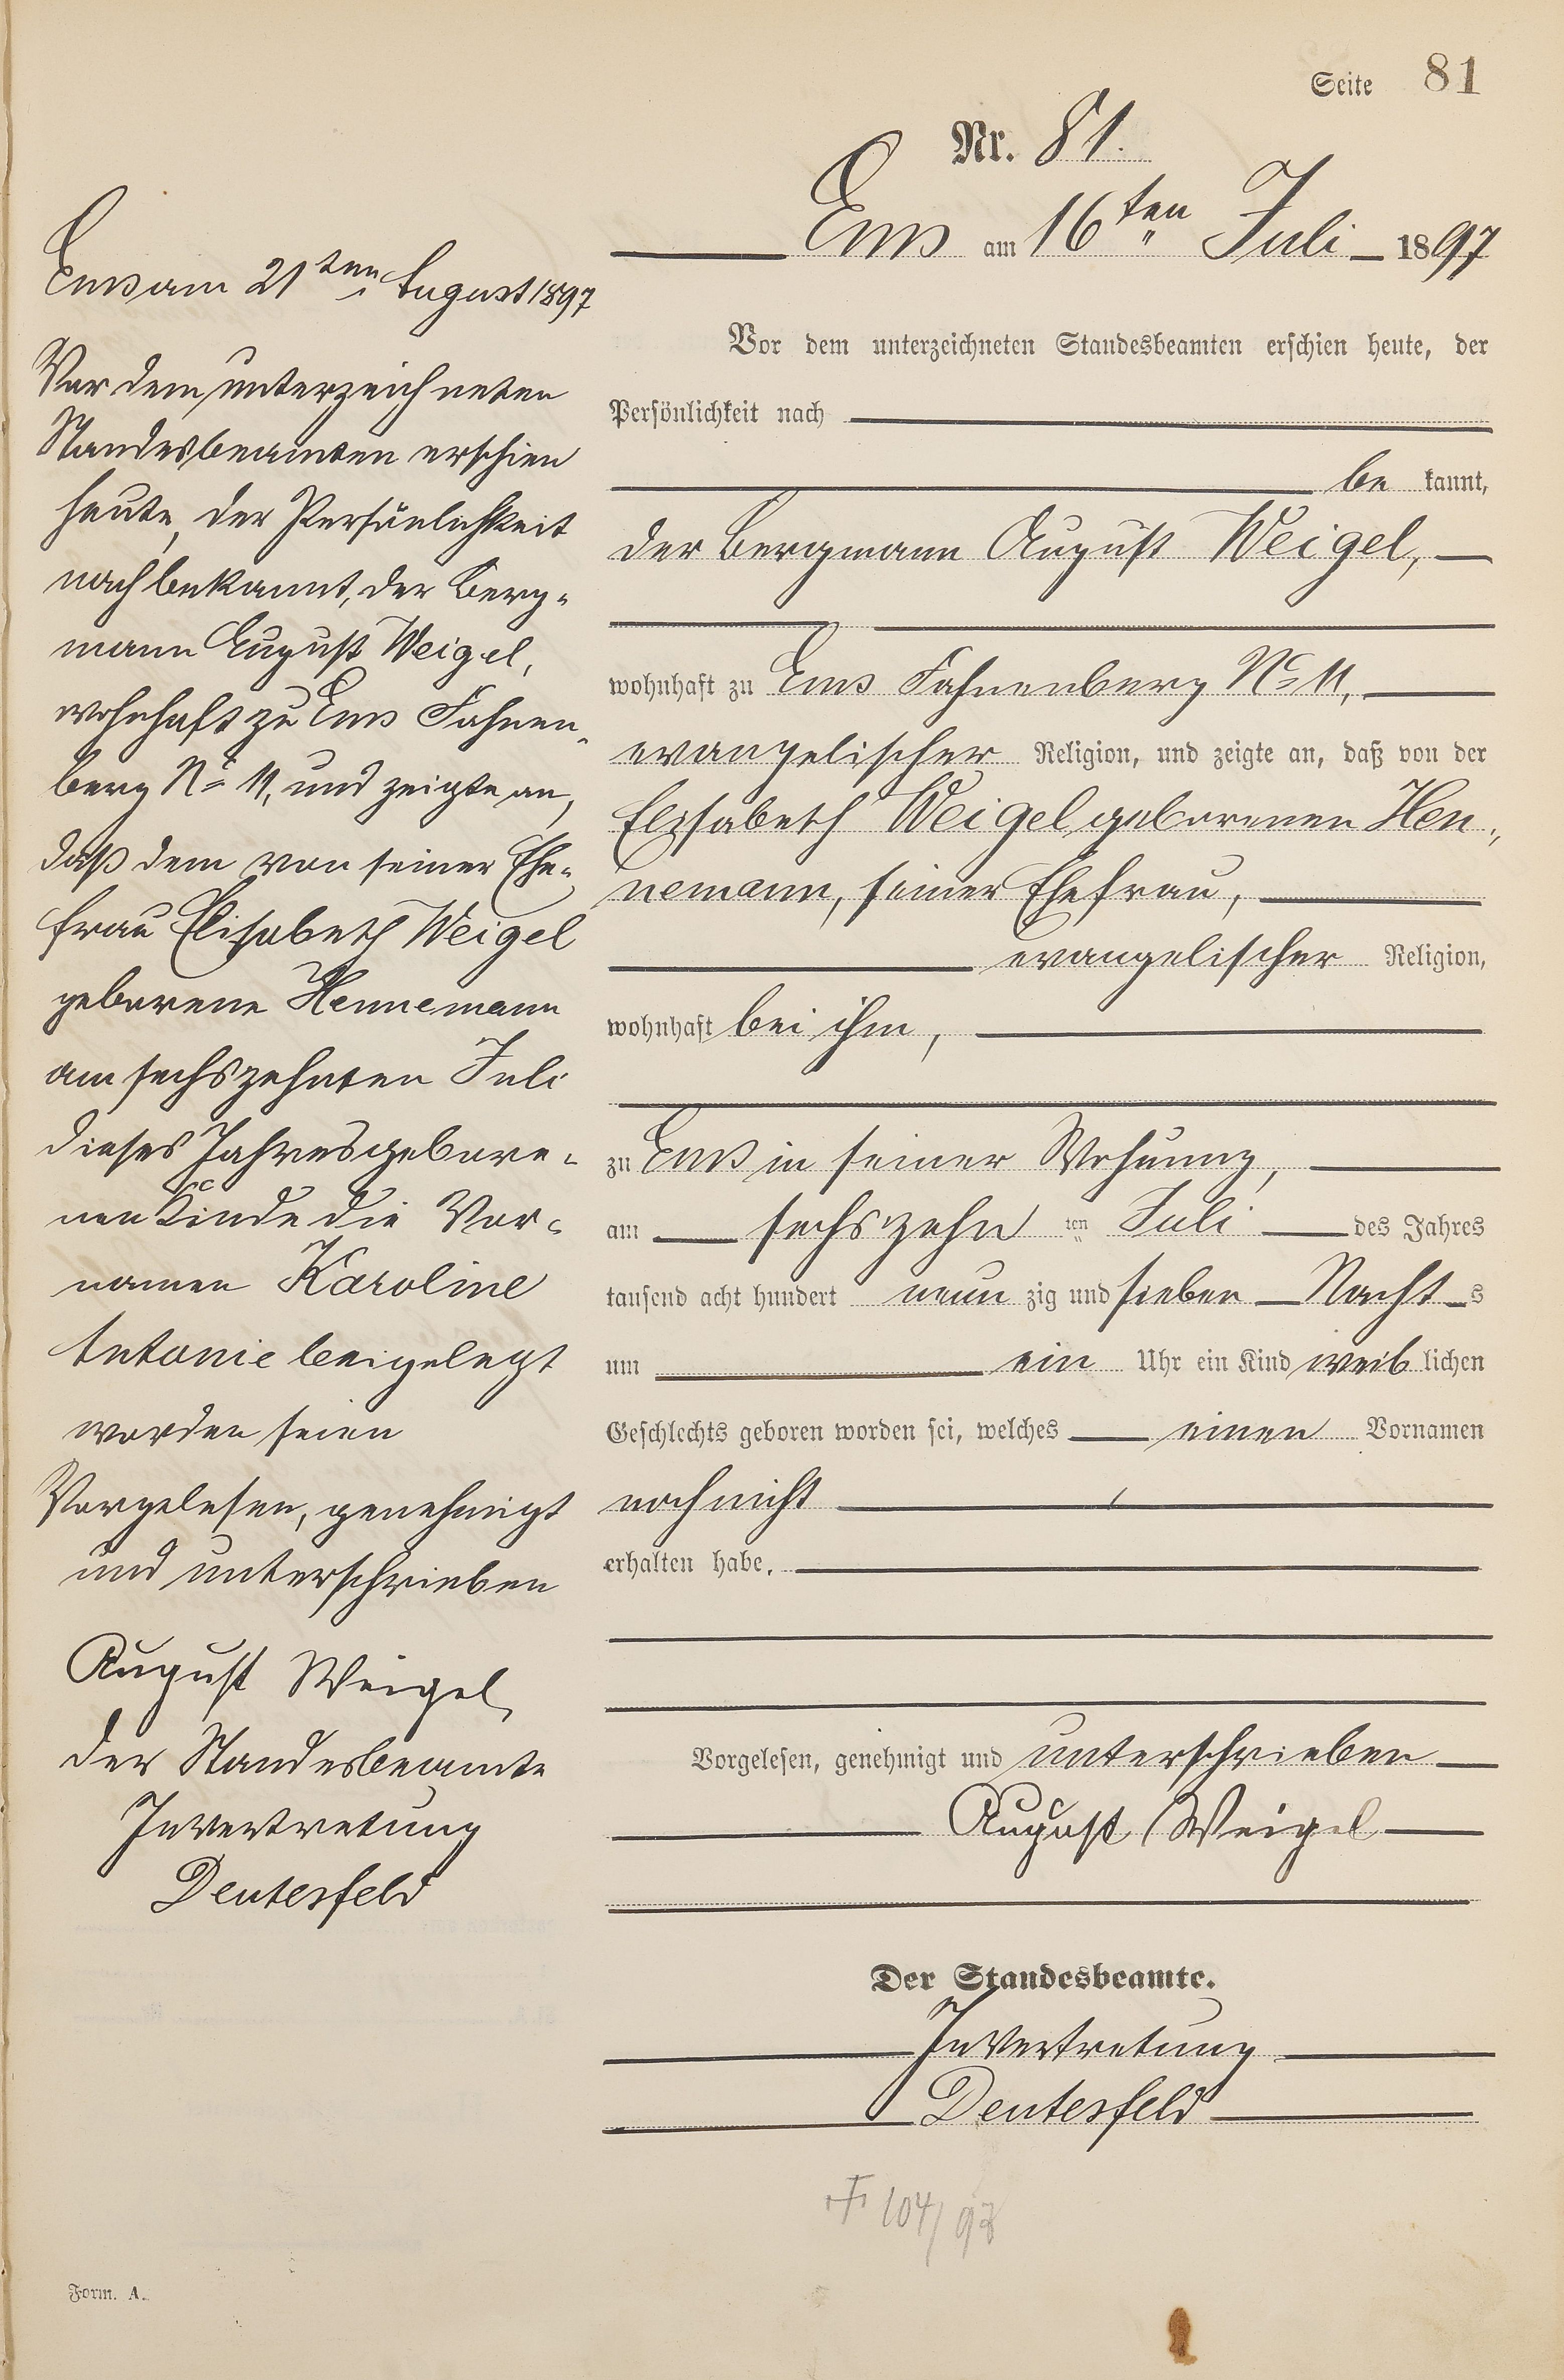 Seite 81
Nr. 81.
Ems am 16ten Juli 1897
Vor dem unterzeichneten Standesbeamten erschien heute, der
Persönlichkeit nach
be kannt,
der Bergmann August Weigel,
wohnhaft zu Ems Fahnenberg No 11,
evangelischer Religion, und zeigte an, daß von der
Elisabeth Weigel geborenen Hen-
nemann, seiner Ehefrau,
evangelischer Religion,
wohnhaft bei ihm,
zu Ems in seiner Wohnung,
am sechszehn ten Juli des Jahres
tausend acht hundert neun zig und sieben Nacht s
um ein Uhr ein Kind weib lichen
Geschlechts geboren worden sei, welches einen Vornamen
noch nicht
erhalten habe.
Vorgelesen, genehmigt und unterschrieben
August Weigel
Der Standesbeamte.
In Vertretung
Deutesfeld
Ems am 21ten August 1897
Vor dem unterzeichneten
Standesbeamten erschien
heute, der Persönlichkeit
nach bekannt, der Berg-
mann August Weigel,
wohnhaft zu Ems Fahnen-
berg No 11, und zeigte an,
daß dem von seiner Ehe-
frau Elisabeth Weigel
geborene Hennemann
am sechszehnten Juli
dieses Jahres gebore-
nen Kinde die Vor-
namen Karoline
Antonie beigelegt
worden seien
Vorgelesen, genehmigt
und unterschrieben
August Weigel
Der Standesbeamte
In Vertretung
Deutesfeld
104/97
Form. A.